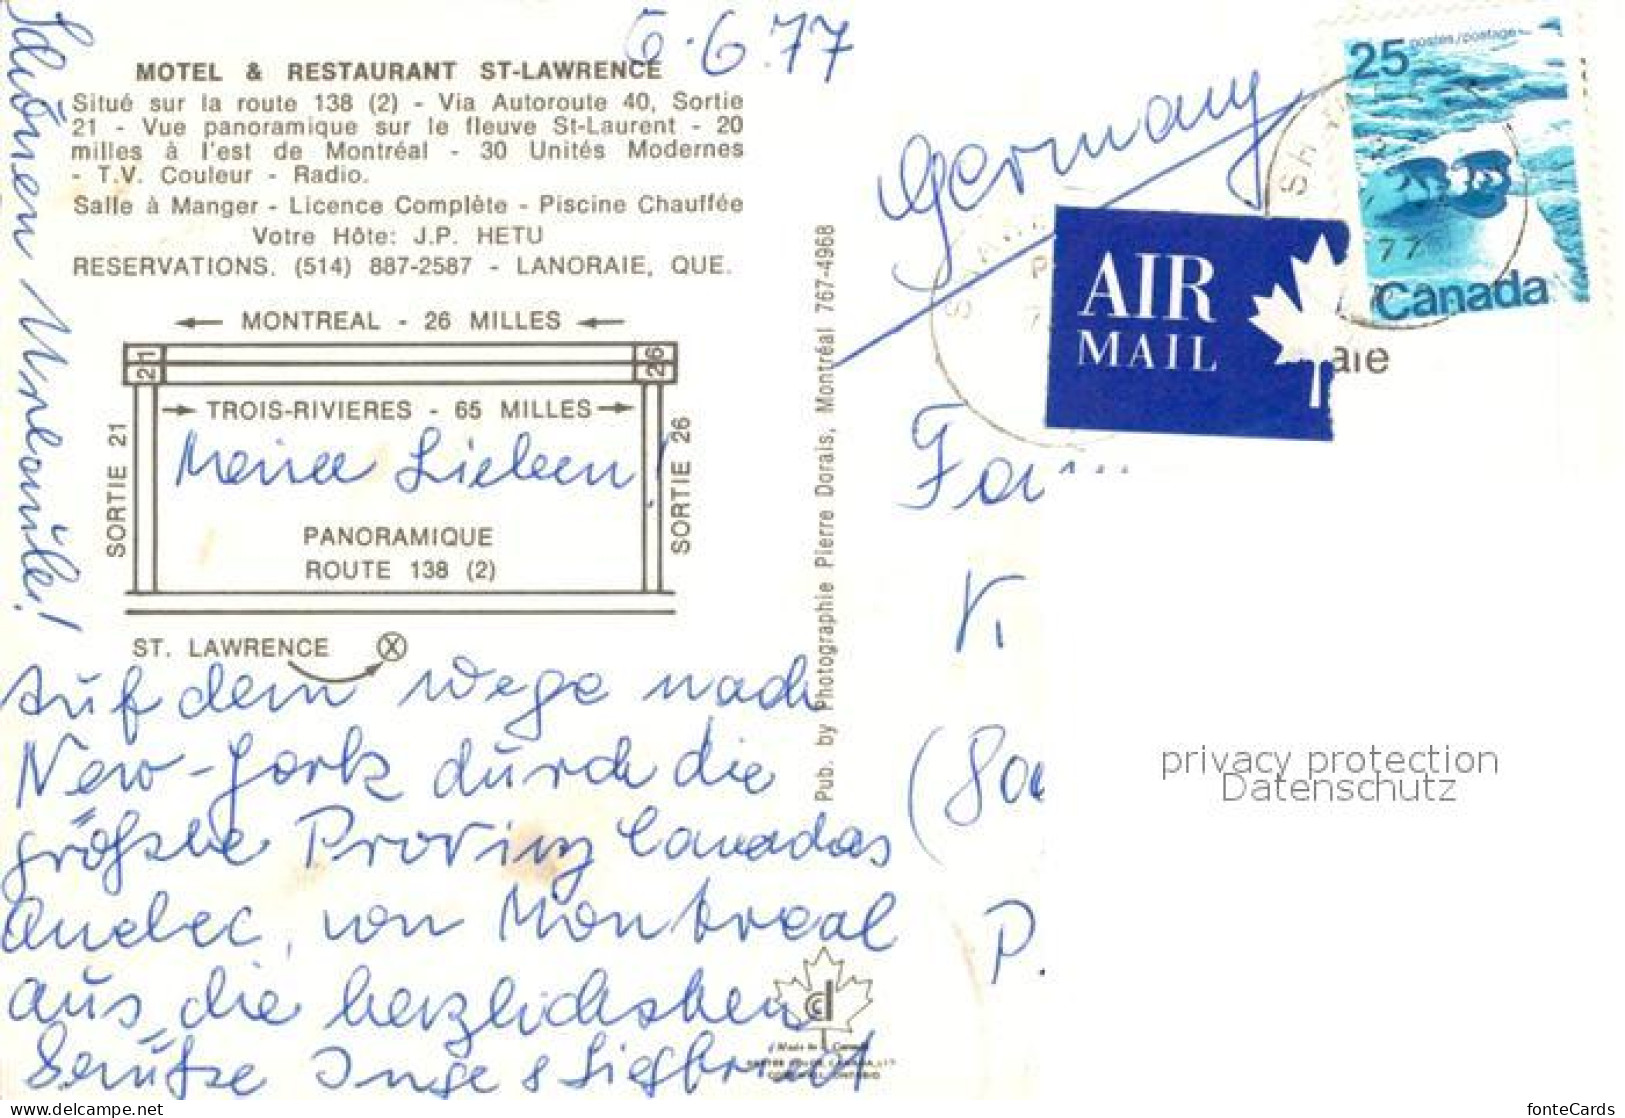 6.6.77
MOTEL & RESTAURANT ST-LAWRENCE
Situé sur la route 138 (2) - Via Autoroute 40, Sortie
21 - Vue panoramique sur le fleuve St-Laurent - 20
milles à l'est de Montréal - 30 Unités Modernes
- T.V. Couleur - Radio.
Salle à Manger - Licence Complète - Piscine Chauffée
Votre Hôte: J.P. HETU
RESERVATIONS. (514) 887-2587 - LANORAIE, QUE.
MONTREAL - 26 MILLES
21
26
TROIS-RIVIERES - 65 MILLES
SORTIE 21
SORTIE 26
Meine Lieben!
PANORAMIQUE
ROUTE 138 (2)
ST. LAWRENCE
X
Auf dem Wege nach
New-York durch die
größte Provinz Canadas
Quebec, von Montreal
aus, die herzlichsten
Grüße Inge & Siegbert
Schönen Urlaub!
Pub. by Photographie Pierre Dorais, Montréal 767-4968
Made in Canada
Germany
25
postes/postage
Canada
77
AIR
MAIL
aie
Fa
K
P.
privacy protection
Datenschutz
www.delcampe.net
fonteCards